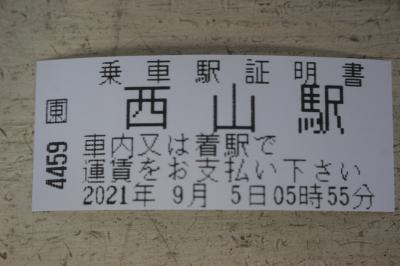 乗車駅証明書
西山駅
車内又は着駅で
運賃をお支払い下さい
2021年 9月 5日05時55分
4459